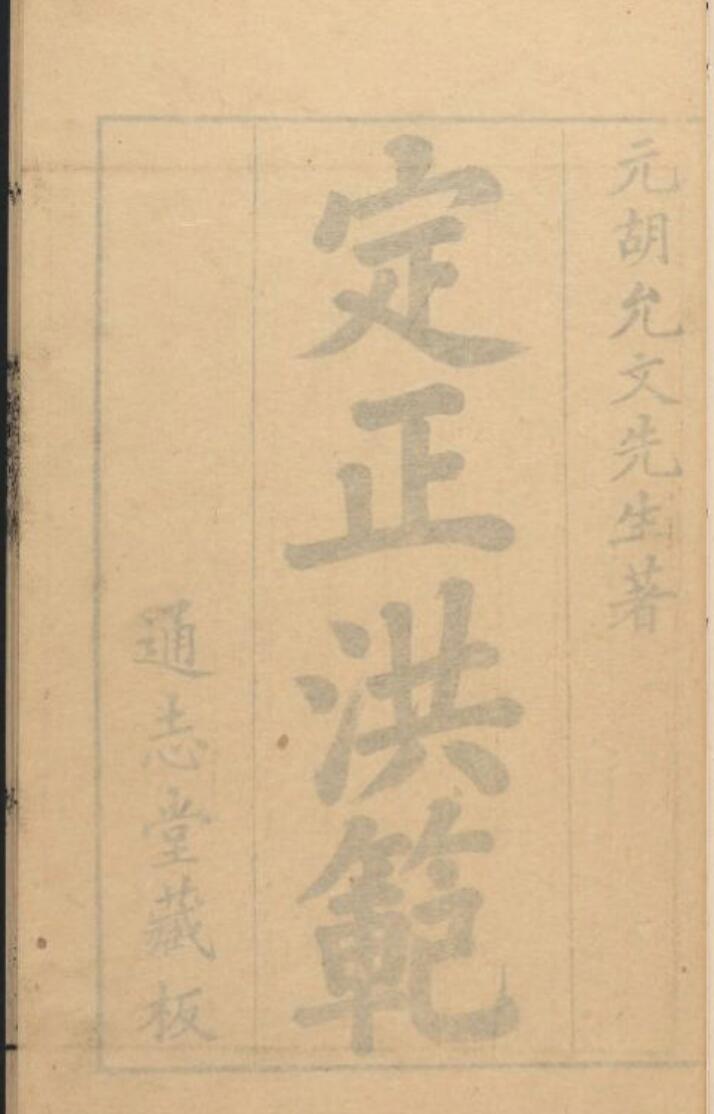 元胡允文先生著
定正洪範
通志堂藏板